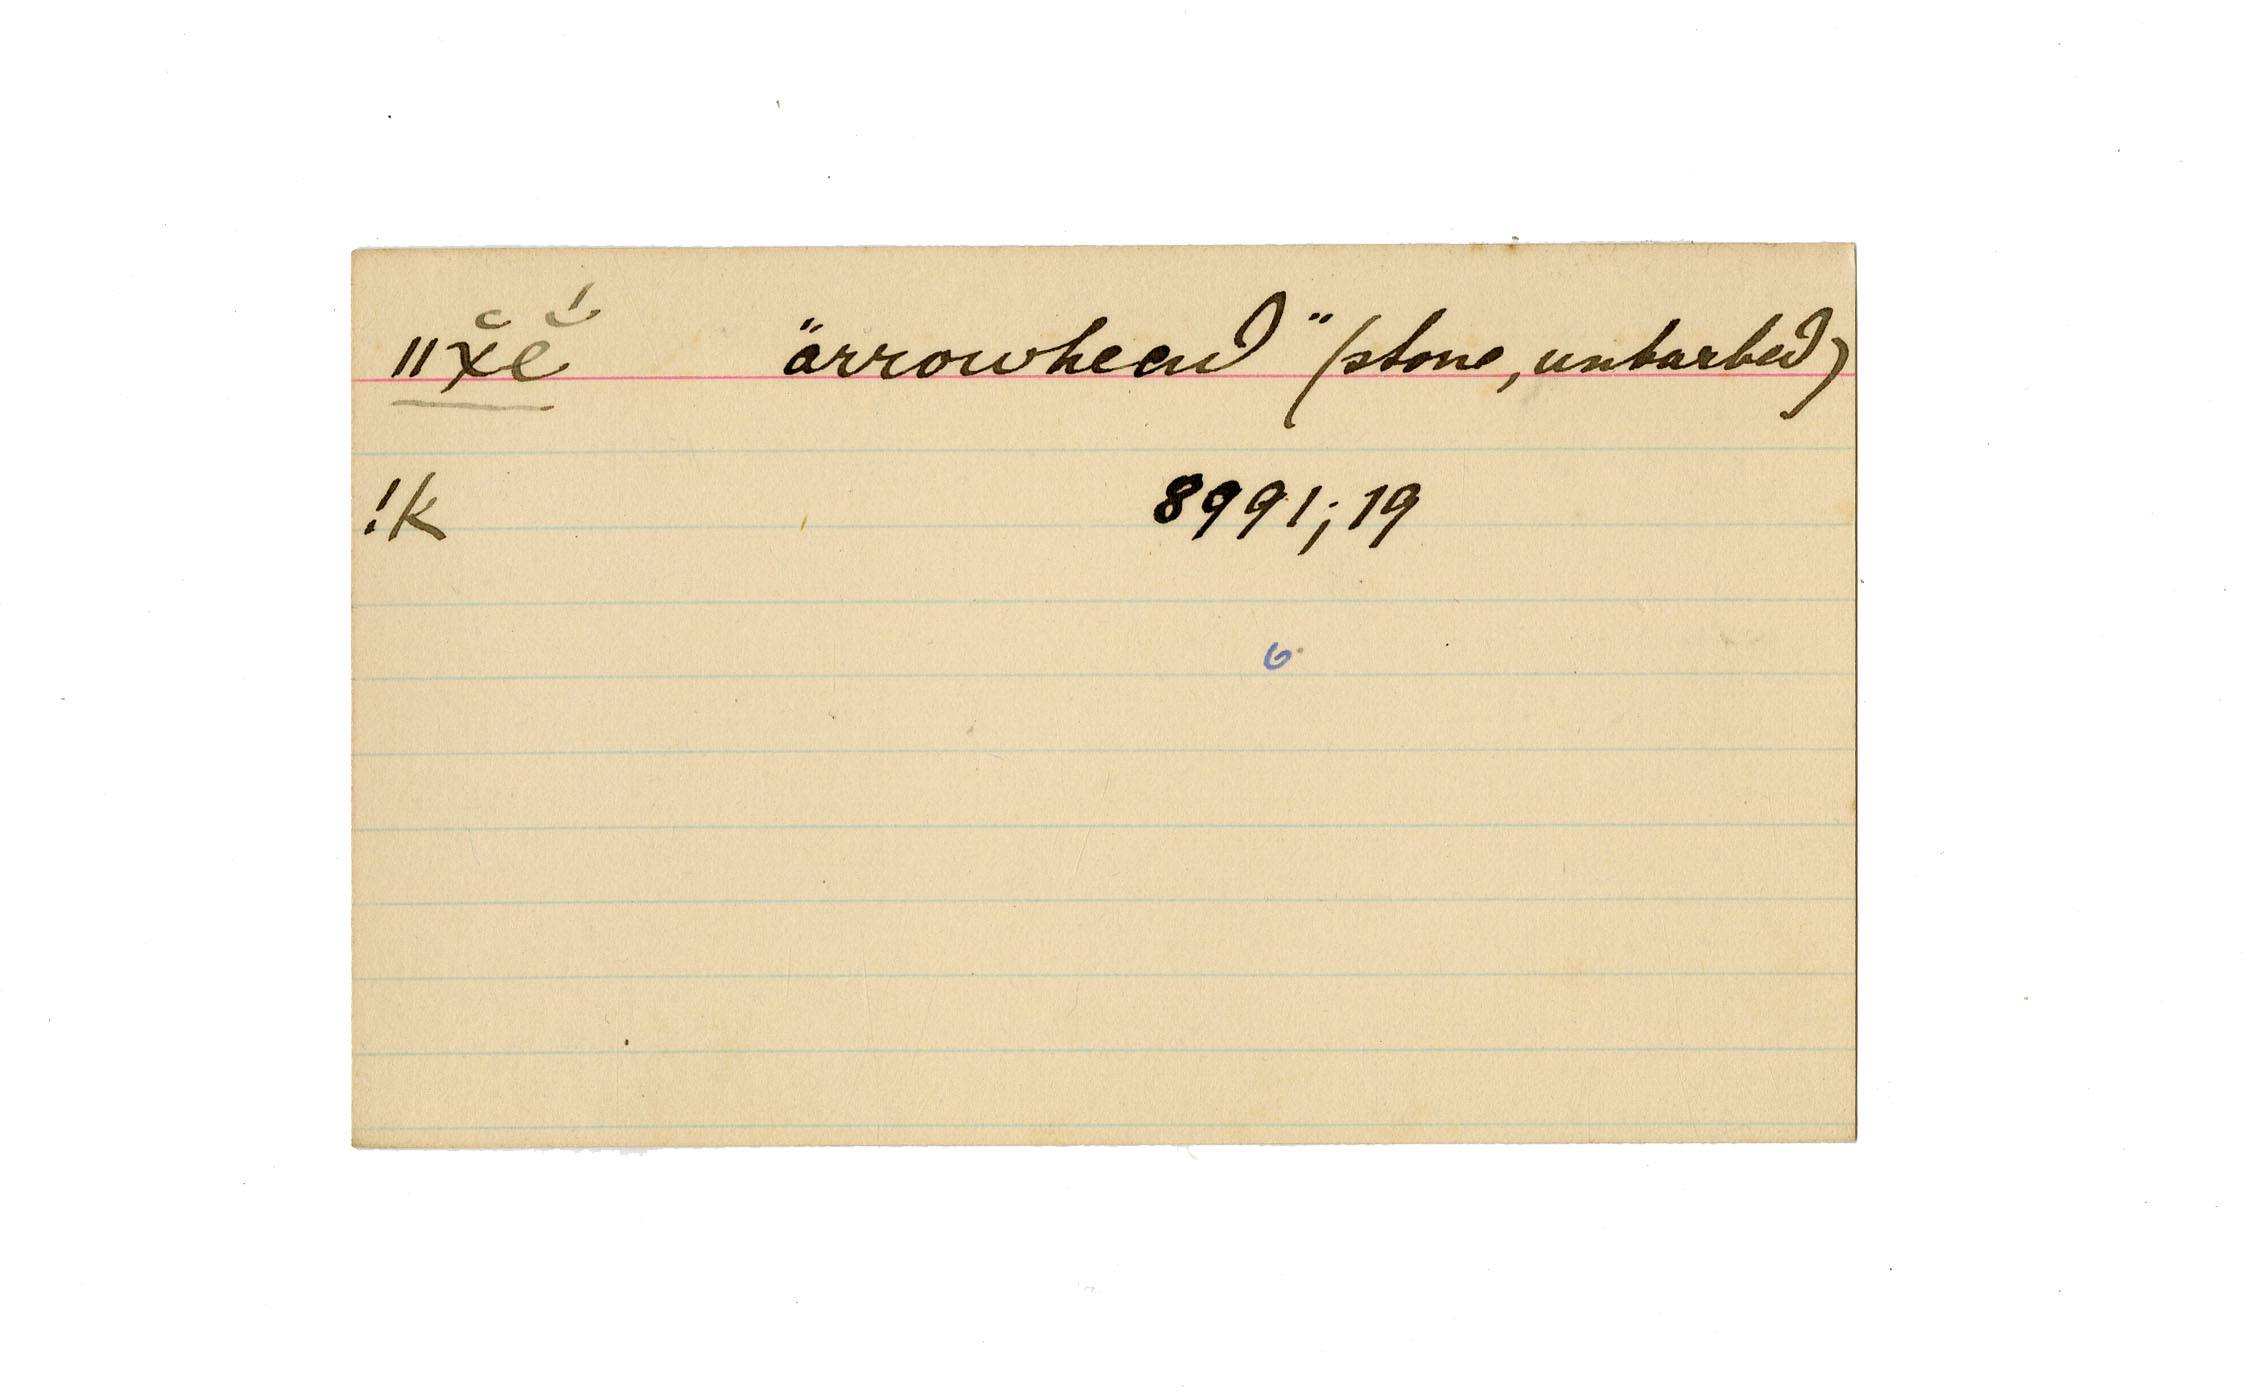 ǁx̆ĕ́ "arrowhead" (stone, unbarbed)
!k 8991; 19
6